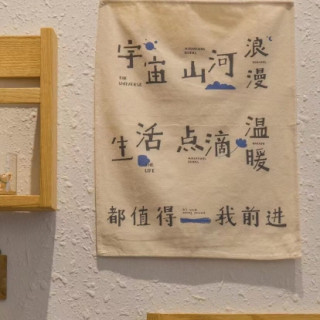 宇宙 山河 浪漫
THE UNIVERSE
生活 点滴 温暖
IN LIFE
都值得 我前进